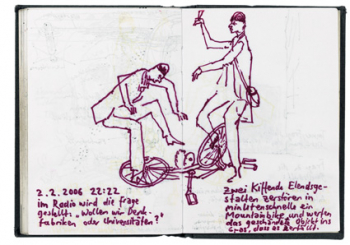 2.2.2006 22:22
im Radio wird die frage
gestellt: „Wollen wir Denk-
fabriken oder Universitäten?"
zwei Kiffende Elendsge-
stalten zerstören in
minutenschnelle ein
Mountainbike und werfen
das geschändete Objekt ins
Gras, dass es